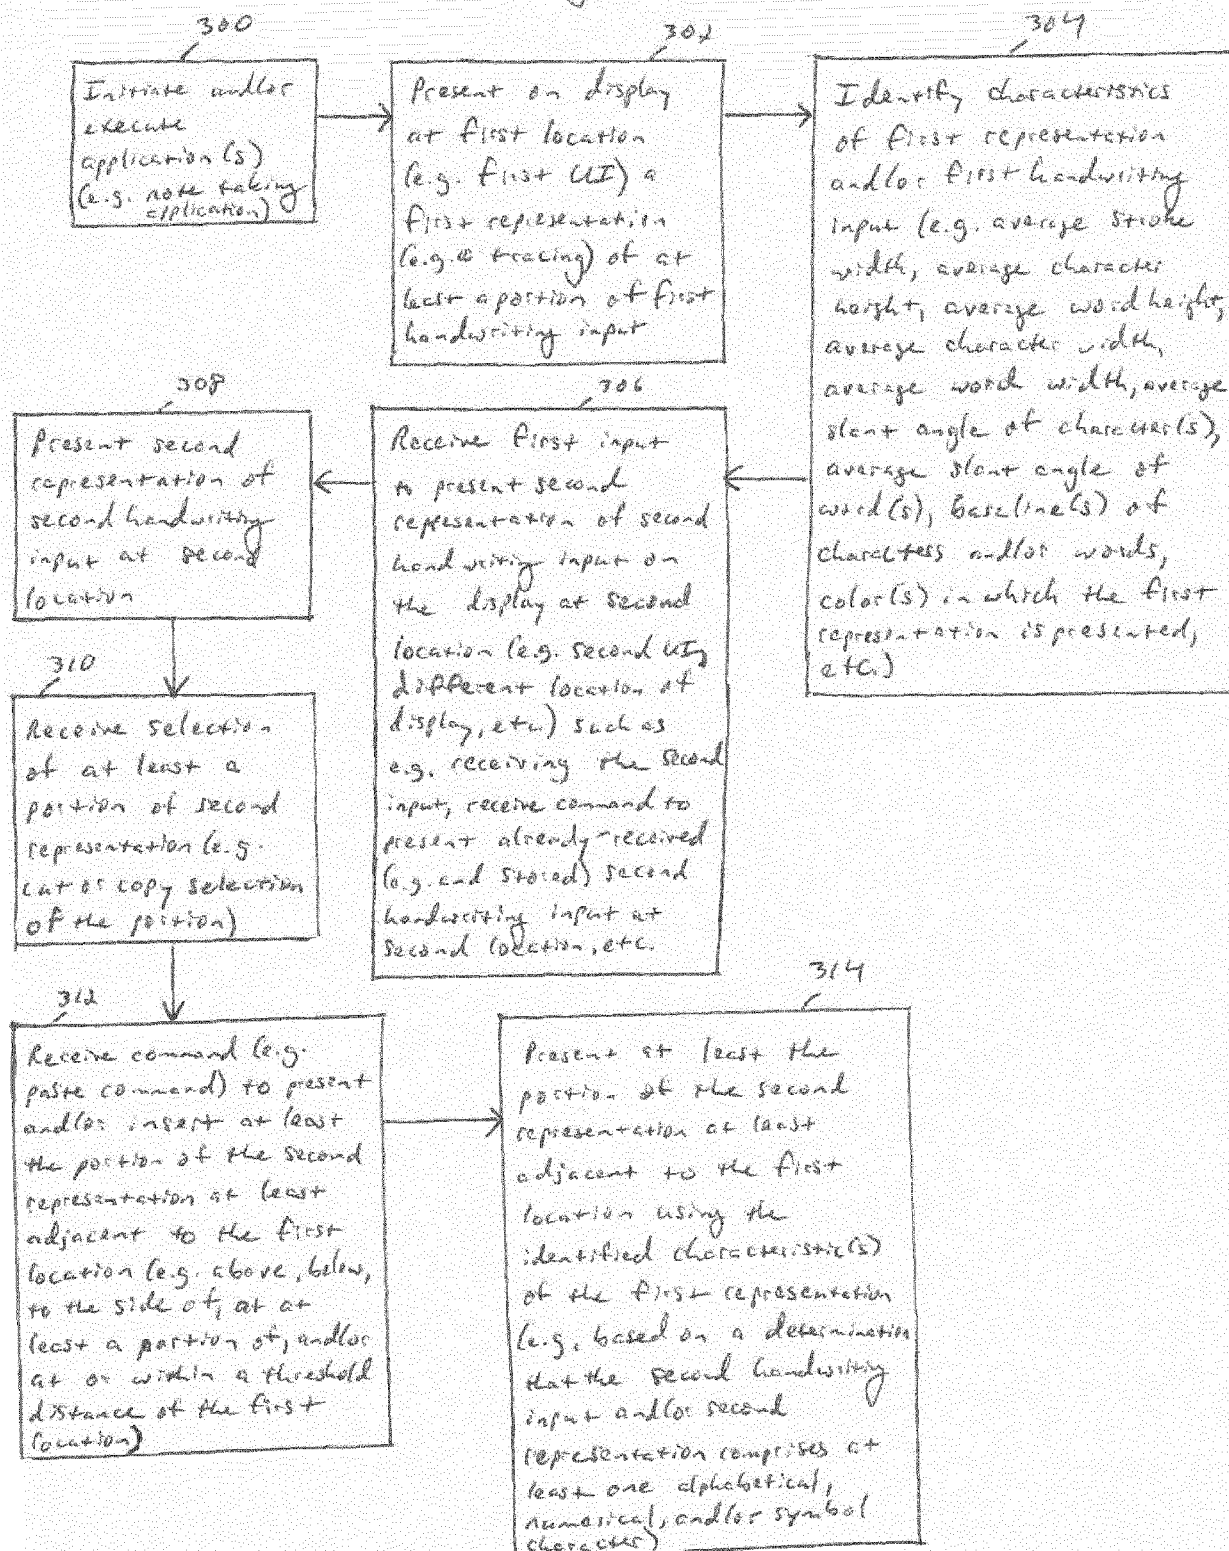 300
Initiate and/or
execute
application(s)
(e.g. note taking
application)
302
Present on display
at first location
(e.g. first UI) a
first representation
(e.g. a tracing) of at
least a portion of first
handwriting input
304
Identify characteristics
of first representation
and/or first handwriting
input (e.g. average stroke
width, average character
height, average word height,
average character width,
average word width, average
slant angle of character(s),
average slant angle of
word(s), baseline(s) of
characters and/or words,
color(s) in which the first
representation is presented,
etc.)
306
Receive first input
to present second
representation of second
handwriting input on
the display at second
location (e.g. second UI,
different location of
display, etc.) such as
e.g. receiving the second
input, receive command to
present already-received
(e.g. and stored) second
handwriting input at
second location, etc.
308
Present second
representation of
second handwriting
input at second
location
310
Receive selection
of at least a
portion of second
representation (e.g.
cut or copy selection
of the portion)
312
Receive command (e.g.
paste command) to present
and/or insert at least
the portion of the second
representation at least
adjacent to the first
location (e.g. above, below,
to the side of, at at
least a portion of, and/or
at or within a threshold
distance of the first
location)
314
Present at least the
portion of the second
representation at least
adjacent to the first
location using the
identified characteristic(s)
of the first representation
(e.g., based on a determination
that the second handwriting
input and/or second
representation comprises at
least one alphabetical,
numerical, and/or symbol
character)